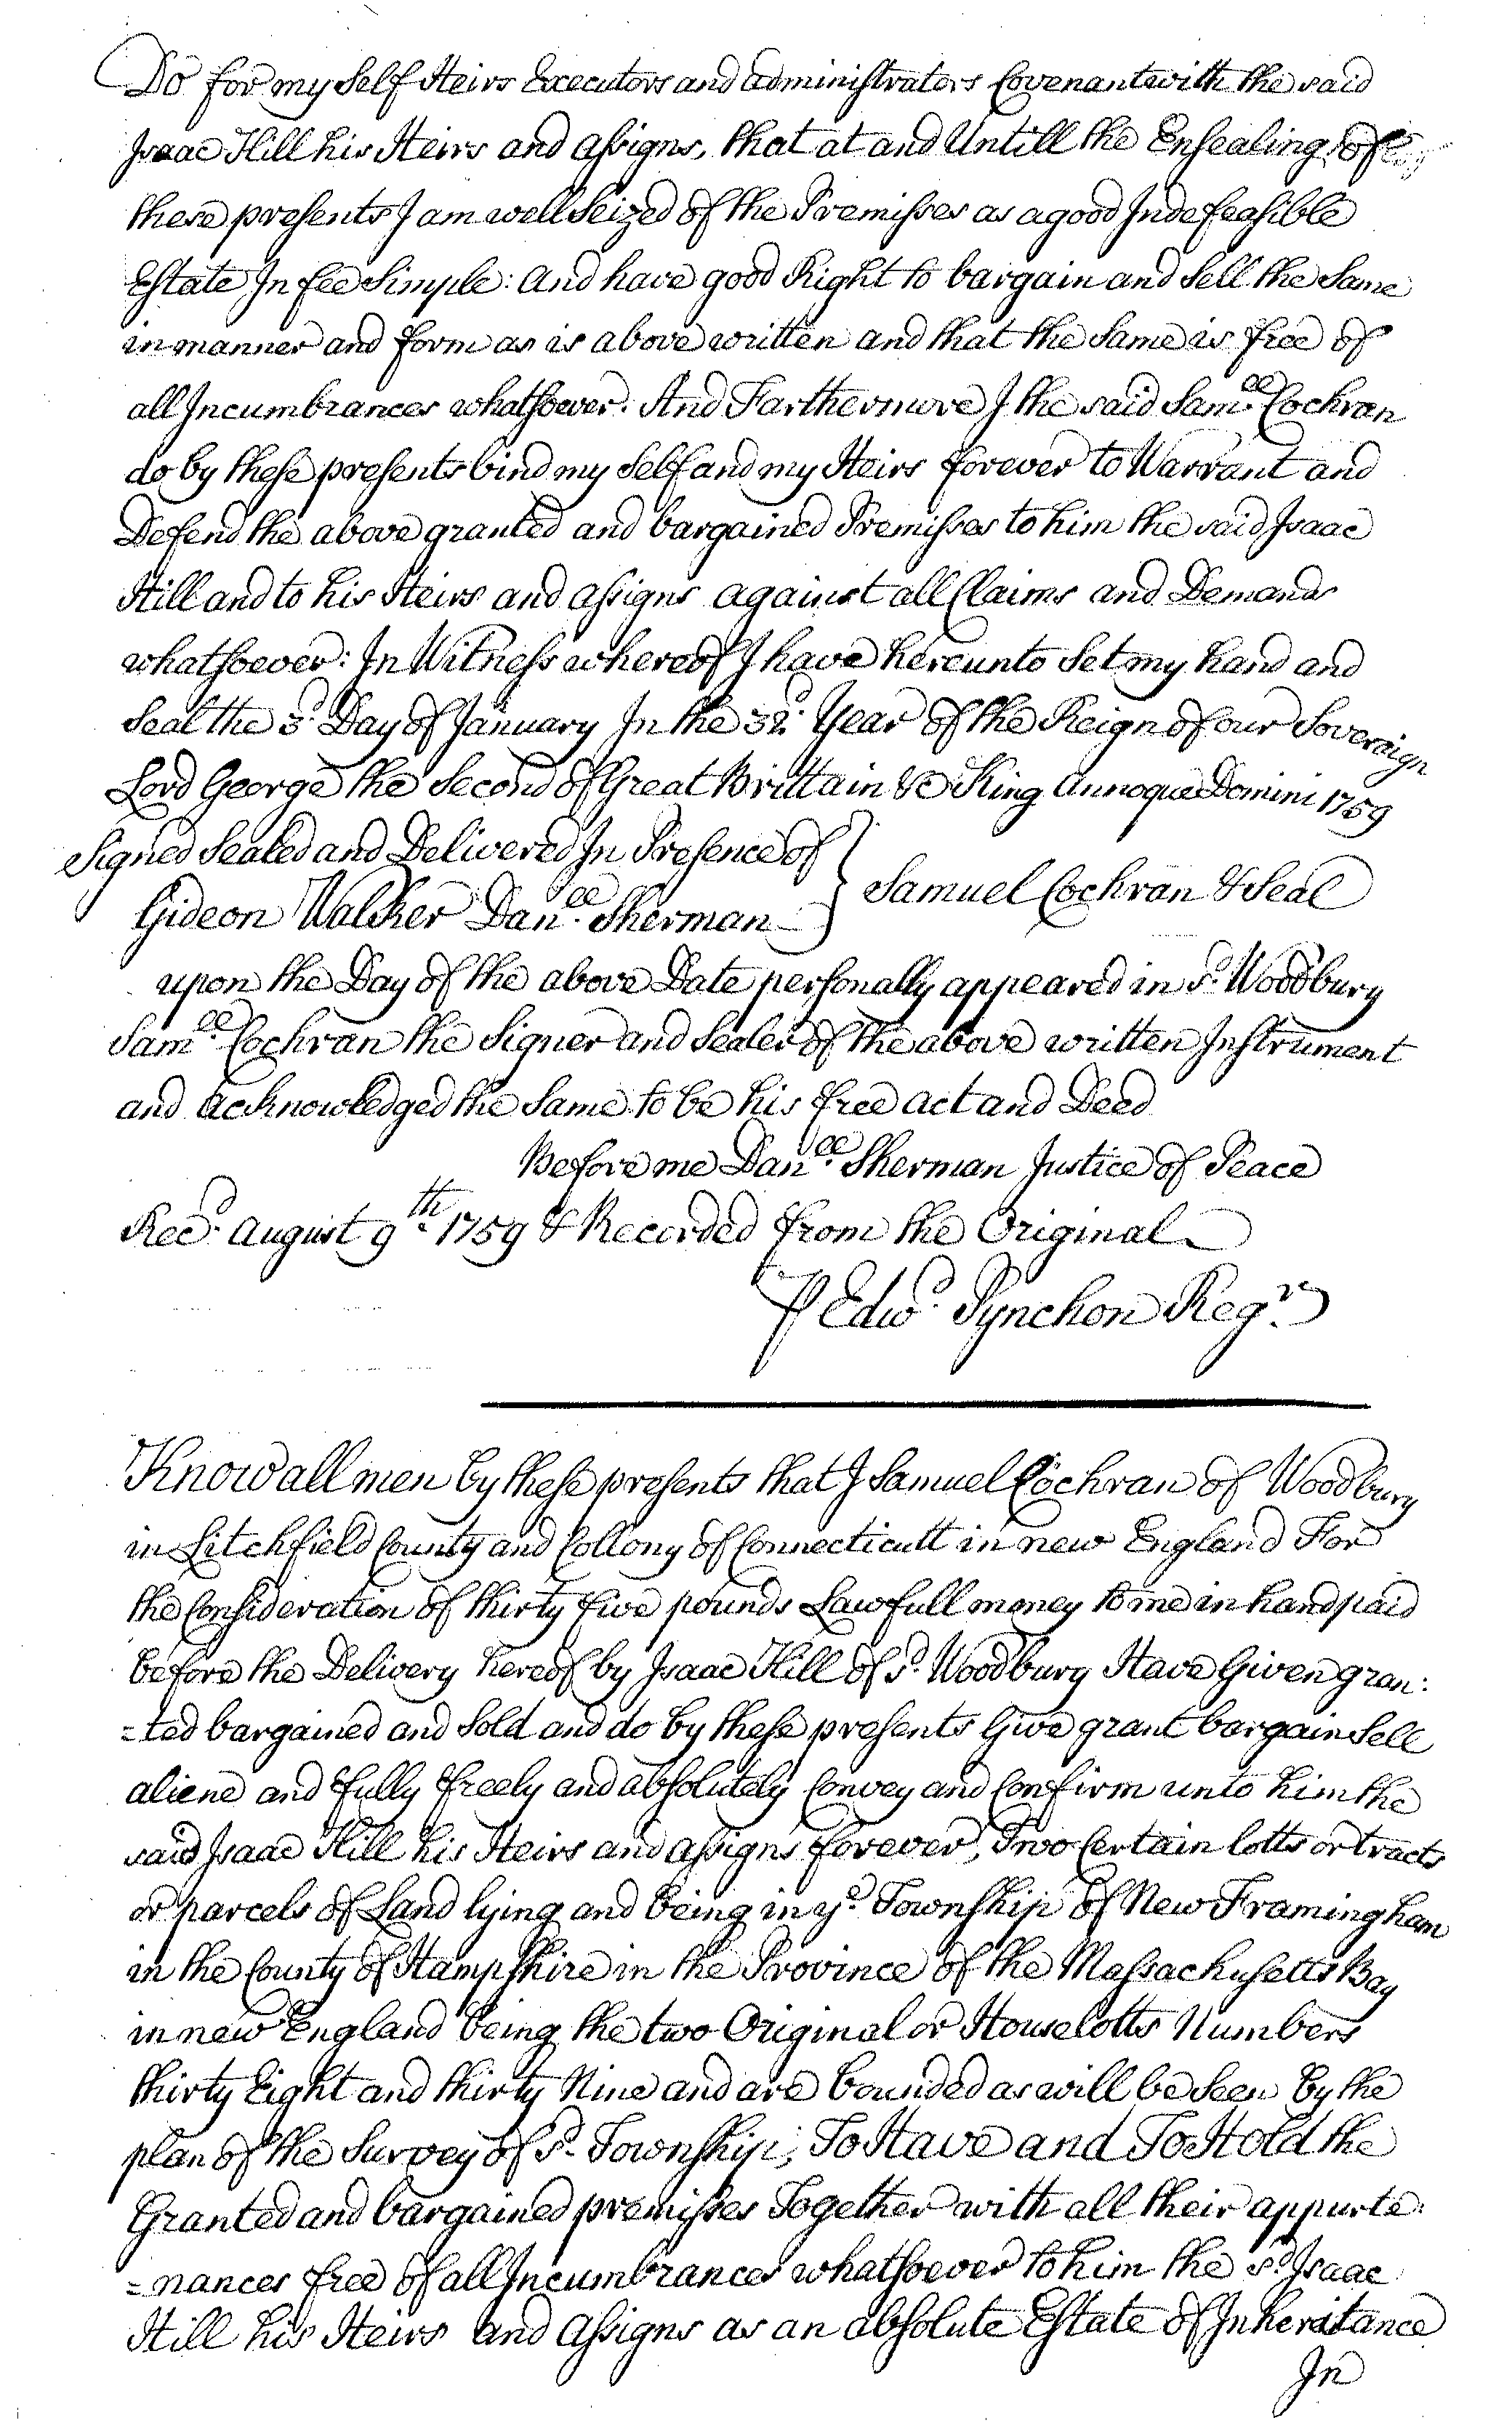 Do for my Self Heirs Executors and administrators Covenant with the said
Isaac Hill his Heirs and assigns, that at and Untill the Ensealing of
these presents I am well Seized of the Premisses as a good Indefeasible
Estate In fee Simple: And have good Right to bargain and Sell the Same
in manner and form as is above written and that the Same is free of
all Incumbrances whatsoever. And Farthermore I the said Sam.ll Cochran
do by these presents bind my Self and my Heirs forever to Warrant and
Defend the above granted and bargained Premisses to him the said Isaac
Hill and to his Heirs and assigns against all Claims and Demands
whatsoever: In Witness whereof I have hereunto Set my hand and
Seal the 3.d Day of January In the 32.d Year of the Reign of our Sovereign
Lord George the Second of Great Brittain &c King Annoque Domini 1759
Signed Sealed and Delivered In Presence of } Samuel Cochran & Seal
Gideon Walker Dan.ll Sherman
upon the Day of the above Date personally appeared in s.d Woodbury
Sam.ll Cochran the Signer and Sealer of the above written Instrument
and acknowledged the Same to be his free act and Deed
Before me Dan.ll Sherman Justice of Peace
Rec.d August 9.th 1759 & Recorded from the Original
P Edw.d Pynchon Reg.r
Know all men by these presents that I Samuel Cochran of Woodbury
in Litchfield County and Collony of Connecticutt in new England For
the Consideration of thirty five pounds Lawfull money to me in hand paid
before the Delivery hereof by Isaac Hill of s.d Woodbury Have Given gran:
=ted bargained and Sold and do by these presents Give grant bargain Sell
aliene and fully freely and absolutely Convey and Confirm unto him the
said Isaac Hill his Heirs and assigns forever, Two Certain lotts or tracts
or parcels of Land lying and being in y.e Township of New Framingham
in the County of Hampshire in the Province of the Massachusetts Bay
in new England being the two Original or Houselotts Numbers
thirty Eight and thirty Nine and are bounded as will be Seen by the
plan of the Survey of s.d Township; To Have and To Hold the
Granted and bargained premisses Together with all their appurte:
=nances free of all Incumbrances whatsoever to him the s.d Isaac
Hill his Heirs and assigns as an absolute Estate of Inheritance
In